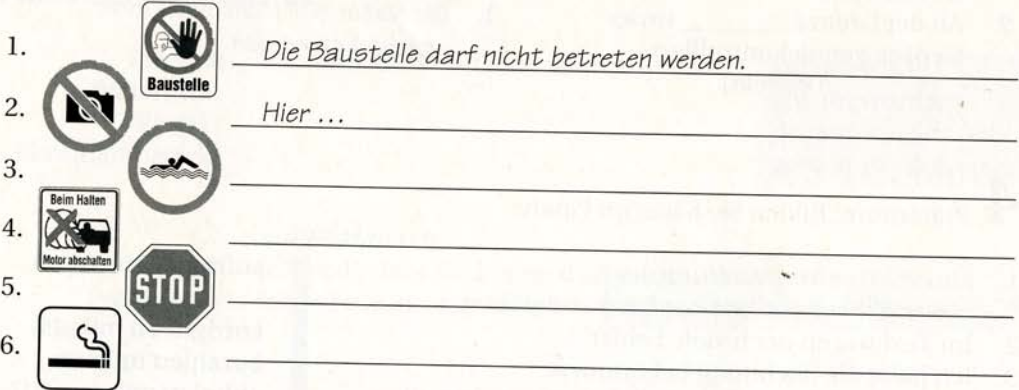 1.
Baustelle
Die Baustelle darf nicht betreten werden.
2.
Hier ...
3.
4.
Beim Halten
Motor abschalten
5.
STOP
6.